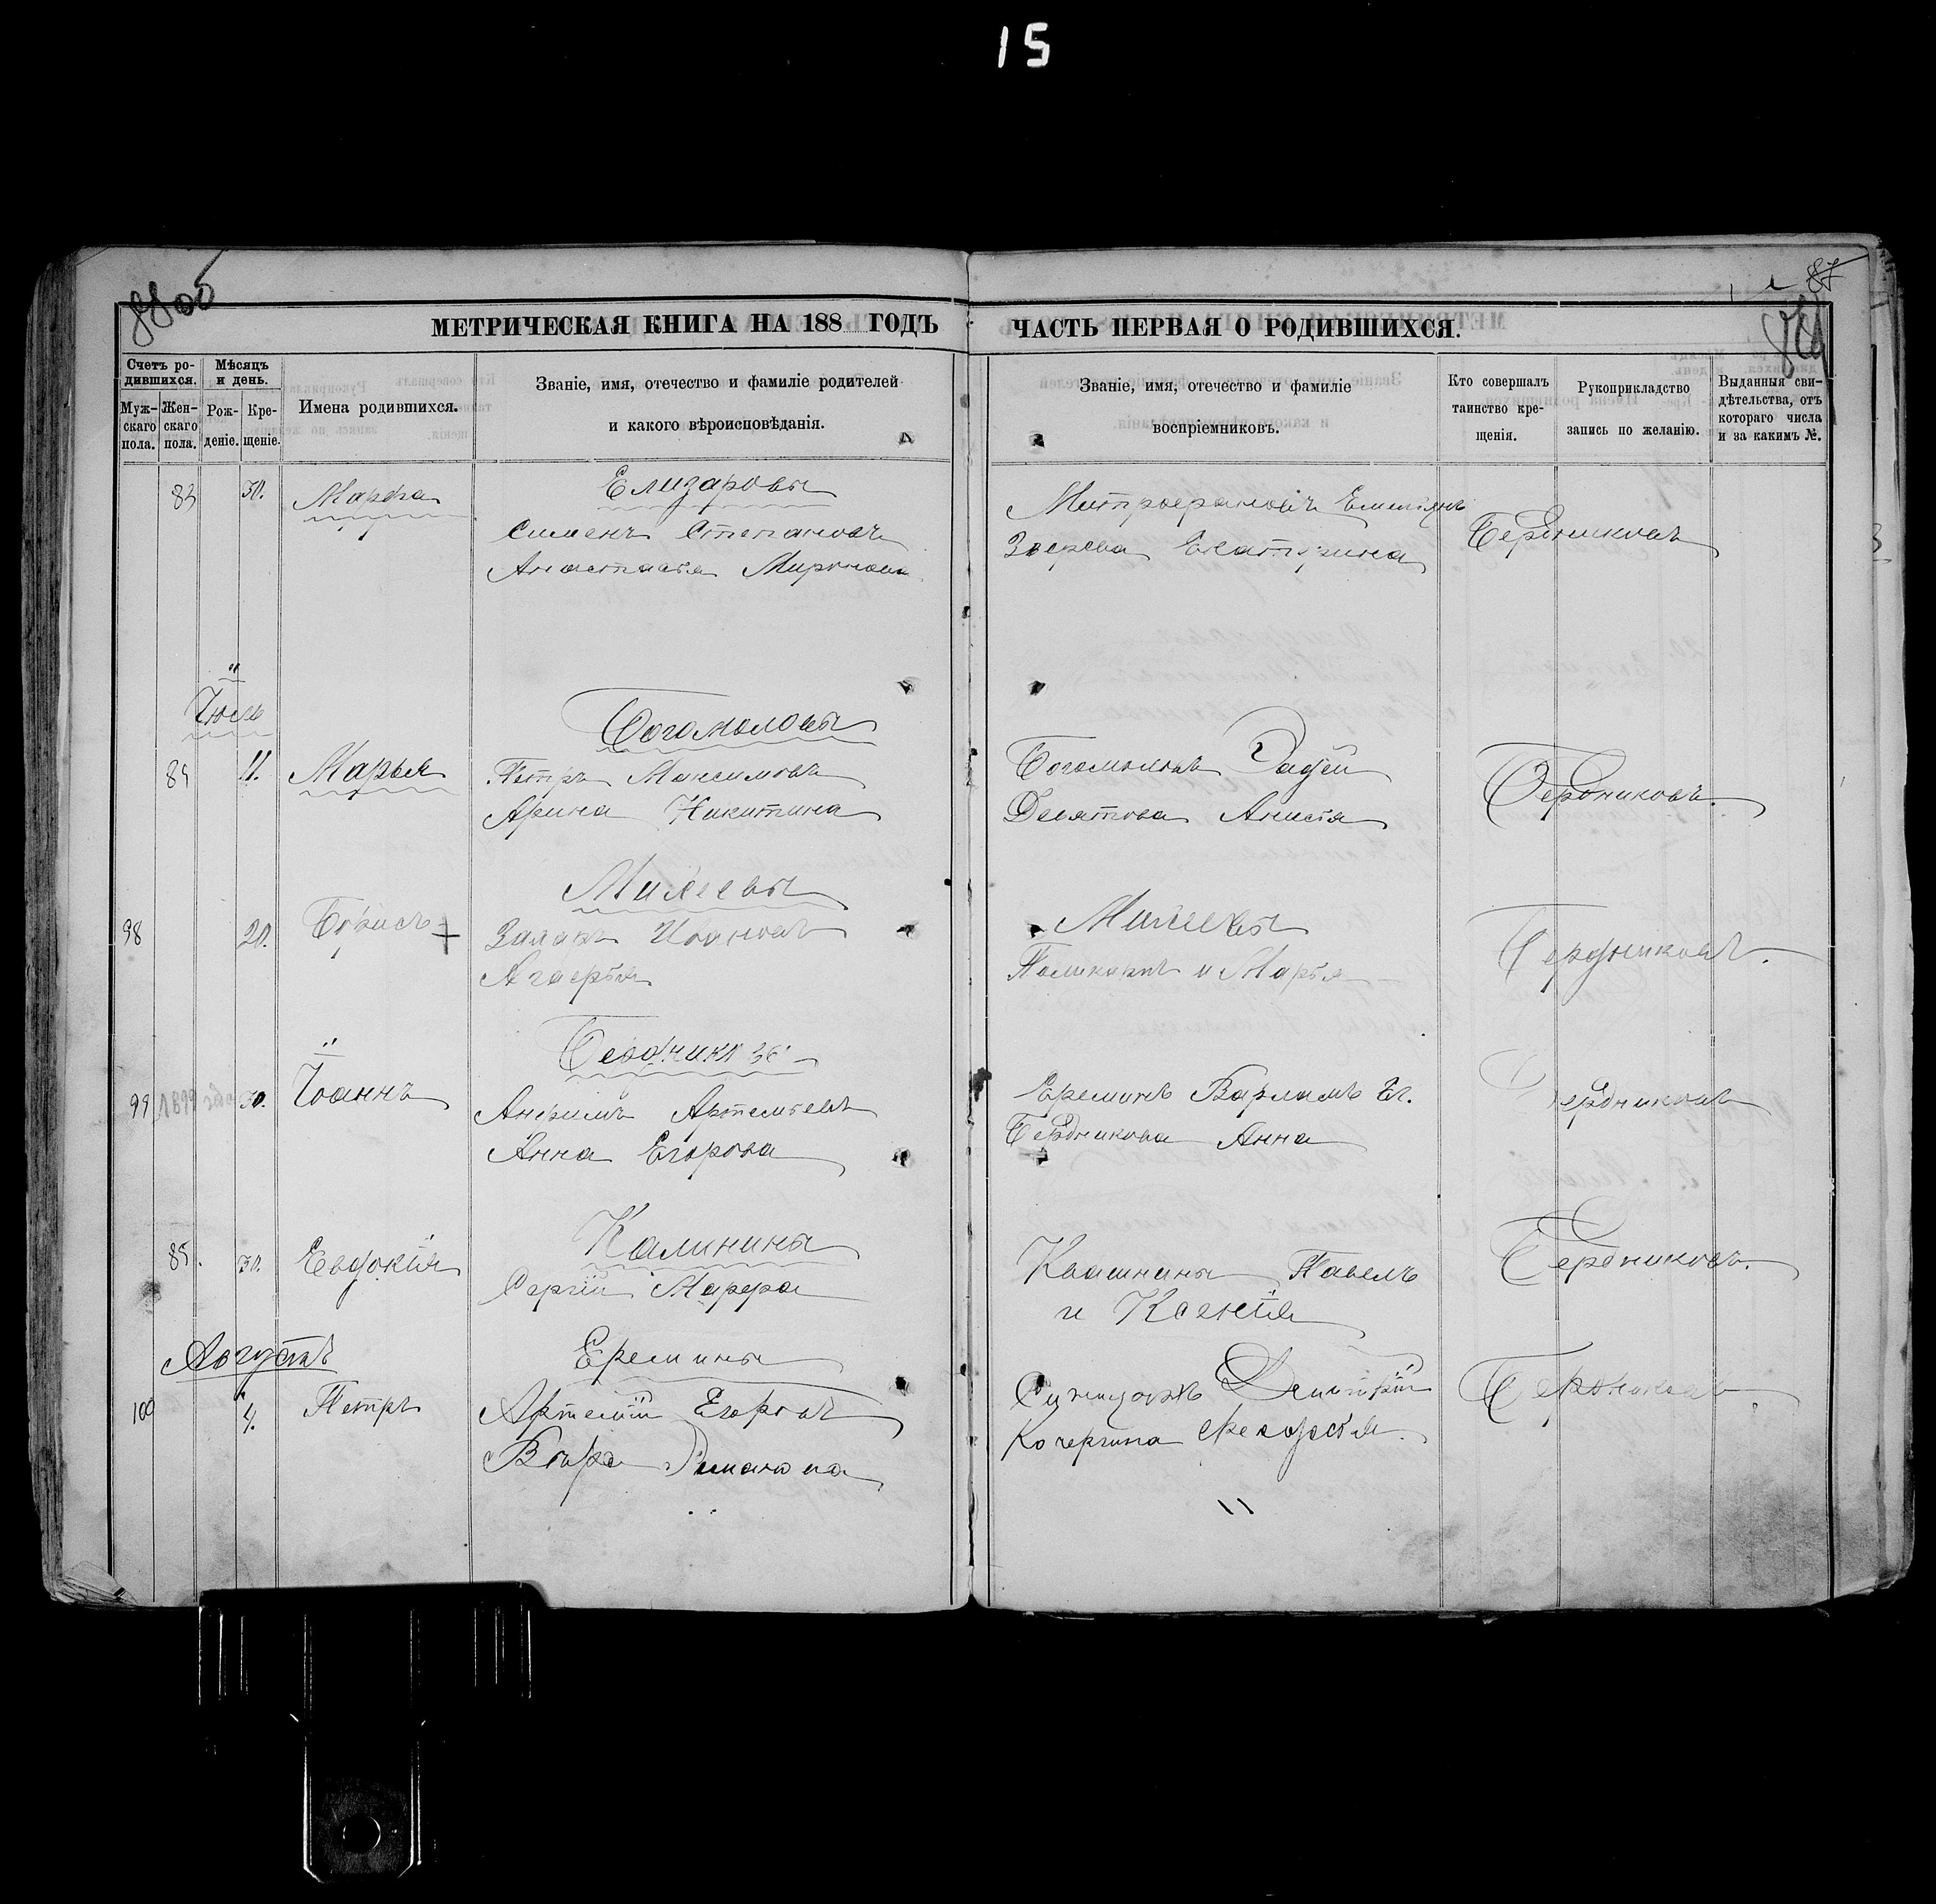 15
88об
87
МЕТРИЧЕСКАЯ КНИГА НА 188 ГОДЪ
ЧАСТЬ ПЕРВАЯ О РОДИВШИХСЯ.
Счетъ ро-
дившихся.
Мужскаго пола.
Женскаго пола.
Мѣсяцъ
и день.
Рожденіе.
Крещеніе.
Имена родившихся.
Званіе, имя, отечество и фамиліе родителей
и какого вѣроисповѣданія.
Званіе, имя, отечество и фамиліе
воспріемниковъ.
Кто совершалъ
таинство кре-
щенія.
Рукоприкладство
запись по желанію.
Выданныя сви-
дѣтельства, отъ
котораго числа
и за какимъ №.
Елизаровы
83 30. Марфа
Сименъ Степановъ
Анастасья Миронова
Зверева Екатерина
Бердниковъ
Іюль
Богомоловы
84 11. Марья
Петръ Максимовъ
Арина Никитина
Богомоловъ Фадей
Девятова Анисья
Бердниковъ.
Михеевы
98 20. Борисъ
Захаръ Ивановъ
Агафья
Михеевы
Поликарпъ и Марья
Бердниковъ.
99 30. Іоаннъ
Анфимъ Артемьевъ
Анна Егорова
Ереминъ Варламъ Ег.
Бердникова Анна
Бердниковъ
Калинины
85. 30. Евдокія
Сергій Марфа
Квашнины Павелъ
и Ксенія
Бердниковъ.
Августъ
Еремины
100 4. Петръ
Артемій Егоровъ
Вѣра Романова
Димитрій
Кочергина Феодосья.
Бердниковъ